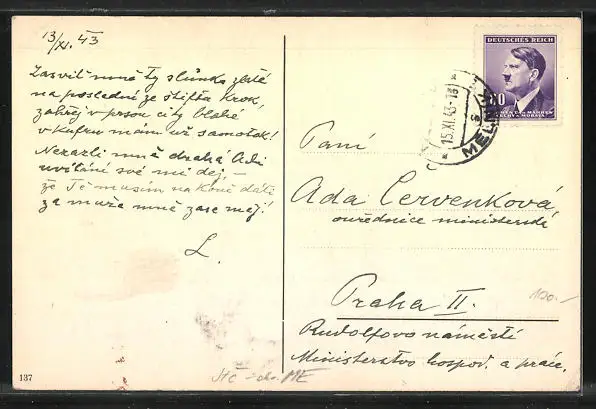 13/XI. 43
Zasviť mně ty slunko zlaté
na poslední ze štífta krok,
zahřej v prsou city blahé
v kufru mám už samotok!
Nezazli mně drahá Adi
uvítání své mi dej, —
že Tě musím na koně dáti
za muže mně zase měj!
L.
DEUTSCHES REICH
60
BÖHMEN U. MÄHREN
ČECHY A MORAVA
15.XI.43-13
MĚL
Paní
Ada Červenková,
ouřednice ministerstva
Praha II.
Rudolfovo náměstí
Ministerstvo hospod. a práce.
100.-
137